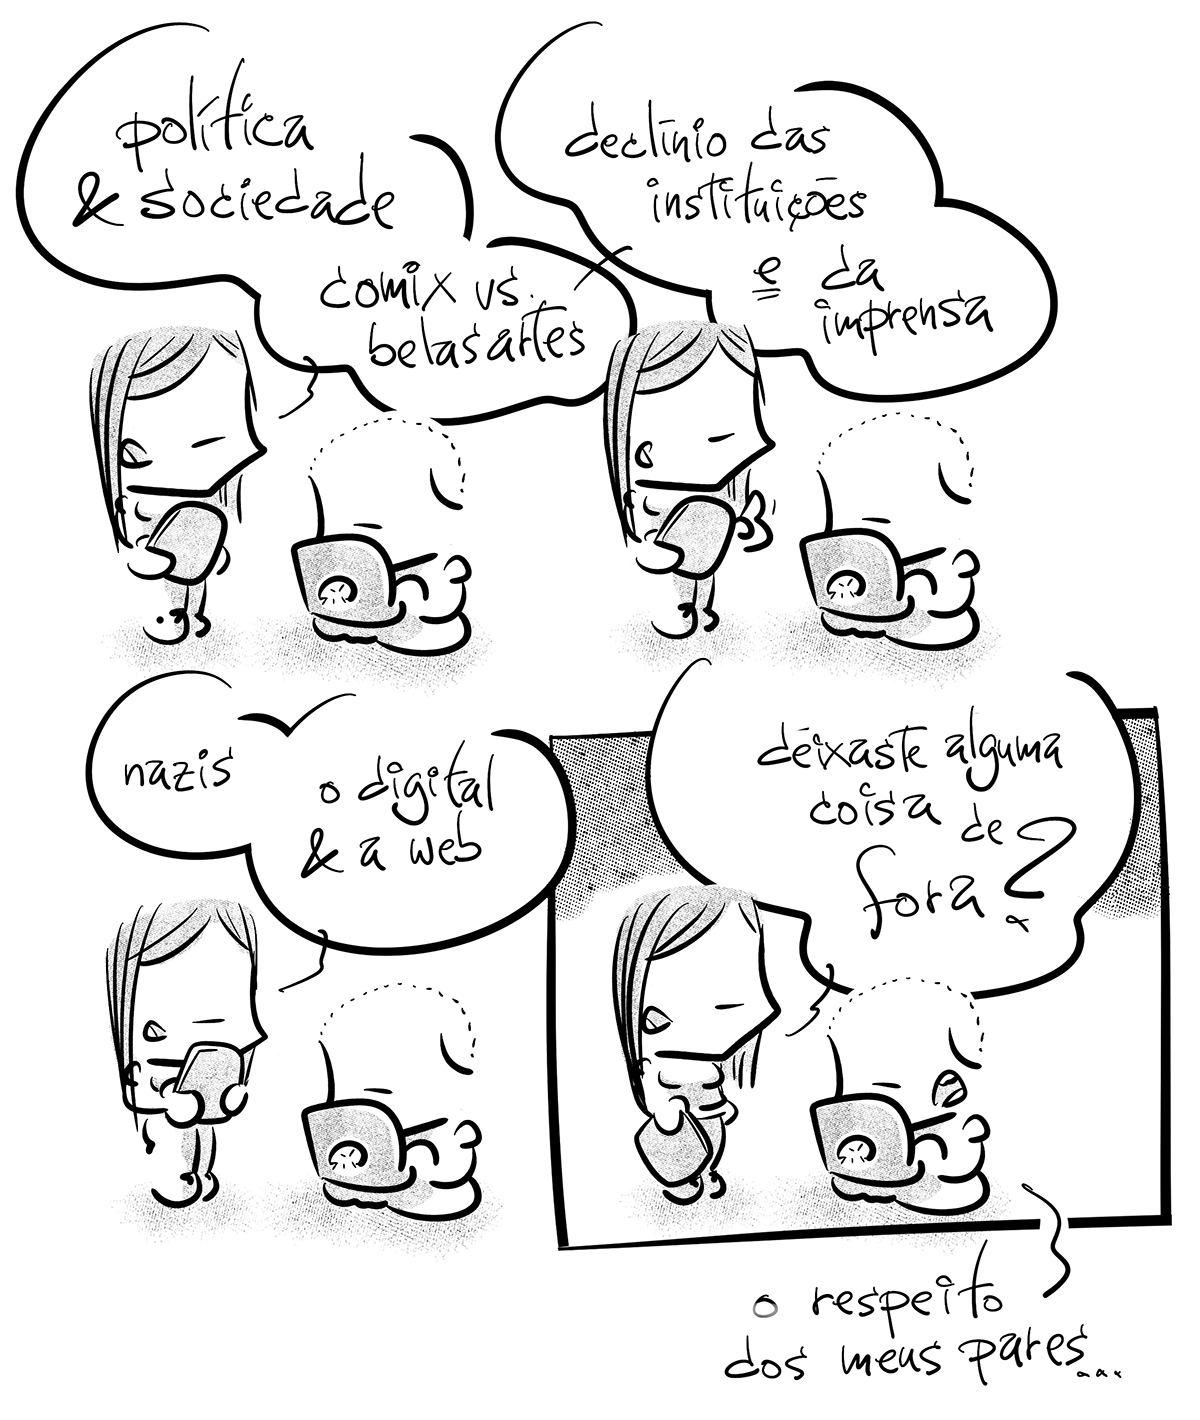 política
& sociedade
comix vs.
belas artes
declínio das
instituições
e da
imprensa
nazis
o digital
& a web
deixaste alguma
coisa de
fora?
o respeito
dos meus pares...